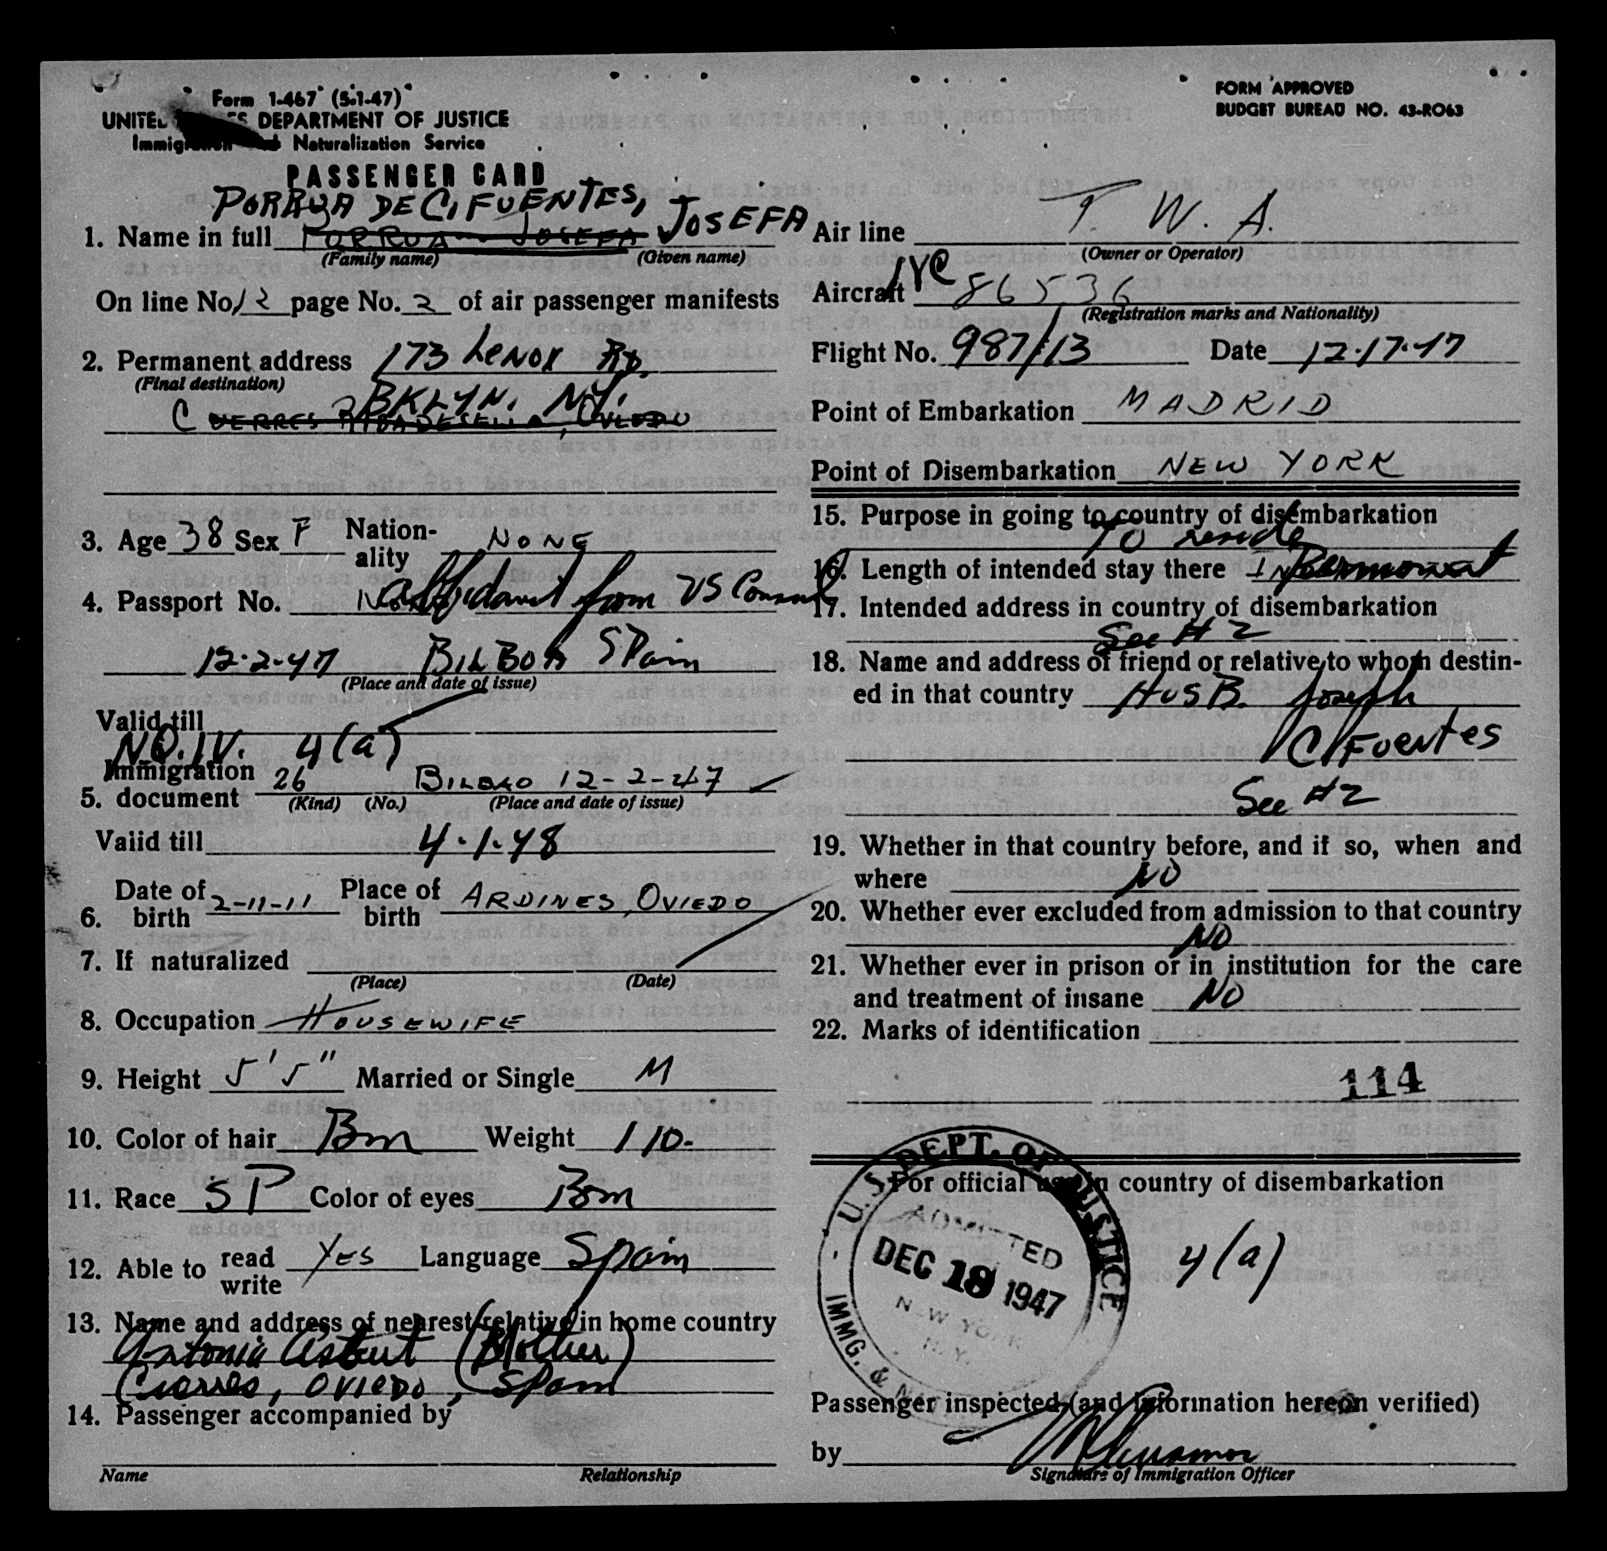 Form 1-467 (5-1-47)
UNITED STATES DEPARTMENT OF JUSTICE
Immigration and Naturalization Service
PASSENGER CARD
PORRUA DE CIFUENTES, JOSEFA
1. Name in full PORRUA JOSEFA
(Family name) (Given name)
On line No. 12 page No. 2 of air passenger manifests
2. Permanent address 173 LENOX RD.
(Final destination)
BKLYN. NY.
C RIBADESELLA, OVIEDO
3. Age 38 Sex F Nation-
ality NONE
4. Passport No. affidavit from US Consul
12-2-47 BILBOA Spain
(Place and date of issue)
Valid till
NQ.I.V. 4(a)
Immigration
5. document 26 BILBAO 12-2-47
(Kind) (No.) (Place and date of issue)
Valid till 4.1.48
Date of Place of
6. birth 2-11-11 birth ARDINES, OVIEDO
7. If naturalized
(Place) (Date)
8. Occupation HOUSEWIFE
9. Height 5'5" Married or Single M
10. Color of hair Brn Weight 110-
11. Race SP Color of eyes Brn
12. Able to read write YES Language Spain
13. Name and address of nearest relative in home country
Antonia (Mother)
OVIEDO, Spain
14. Passenger accompanied by
Name Relationship
FORM APPROVED
BUDGET BUREAU NO. 43-RO63
Air line T. W. A.
(Owner or Operator)
Aircraft NC 86536
(Registration marks and Nationality)
Flight No. 987/13 Date 12-17-47
Point of Embarkation MADRID
Point of Disembarkation NEW YORK
15. Purpose in going to country of disembarkation
To reside
16. Length of intended stay there Permanent
17. Intended address in country of disembarkation
See #2
18. Name and address of friend or relative to whom destin-
ed in that country HUSB. Joseph
CIFuentes
See #2
19. Whether in that country before, and if so, when and
where NO
20. Whether ever excluded from admission to that country
NO
21. Whether ever in prison or in institution for the care
and treatment of insane NO
22. Marks of identification
114
For official use in country of disembarkation
U.S. DEPT. OF JUSTICE
ADMITTED
DEC 18 1947
NEW YORK
N.Y.
IMMG. &
4(a)
Passenger inspected (and information hereon verified)
by
Signature of Immigration Officer